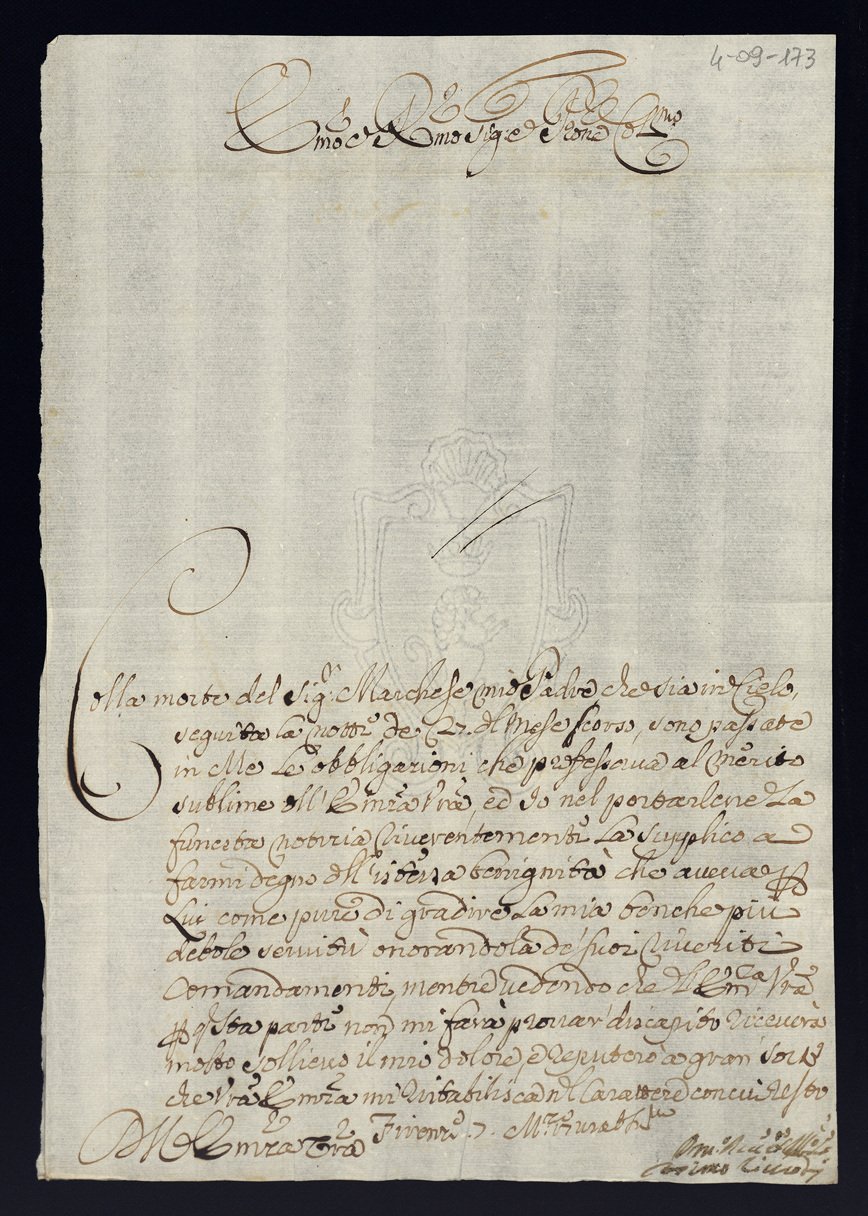 4-09-173
Emo e Rmo Sig:re e Prone Colmo
Colla morte del Sig:r Marchese mio Padre che sia in Cielo,
seguita la notte de 27. dl Mese scorso, sono passate
in Me le obbligazioni che professava al merito
sublime dll' Emza Vra, ed Io nel portarlene la
funesta notizia riverentemente la supplico a
farmi degno dll' istessa benignità che aveva p
Lui come pure di gradire la mia benche più
debole servitù onorandola de' suoi riveriti
Comandamenti, mentre vedendo che dll' Emza Vra
p qsta parte non mi farà provar' discapito riceverà
molto sollievo il mio dolore, e reputerò a gran sorte
che Vra Emza mi ristabilisca nl Carattere con cui resto
Dll' Emza Vra Firenze 7.
Cosimo Riccardi